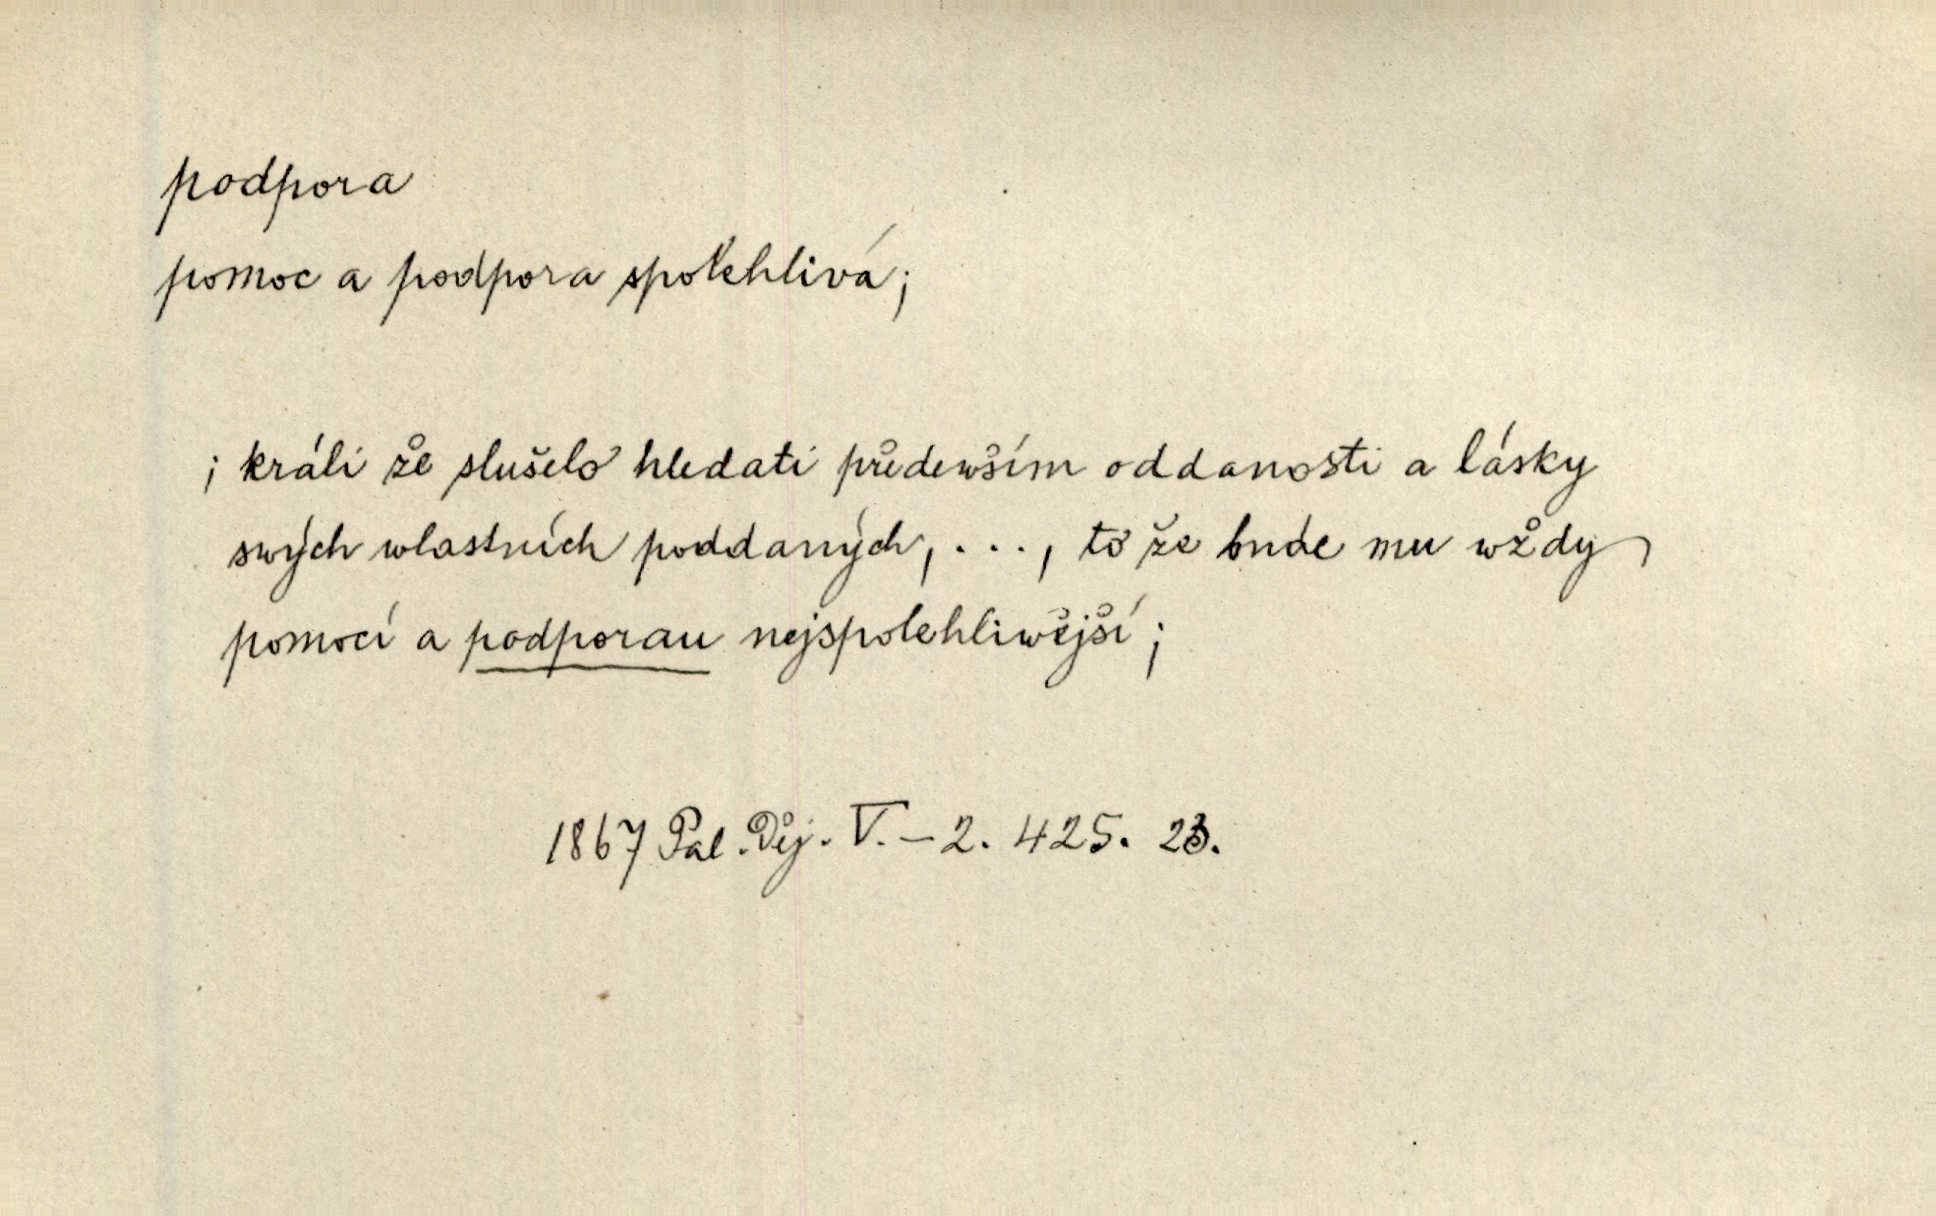 podpora
pomoc a podpora spolehlivá;
; králi že slušelo hledati předewším oddanosti a lásky
swých wlastních poddaných, ..., to že bude mu wždy
pomocí a podporau nejspolehliwější;
1867 Pal. Děj. V. – 2. 425. 23.